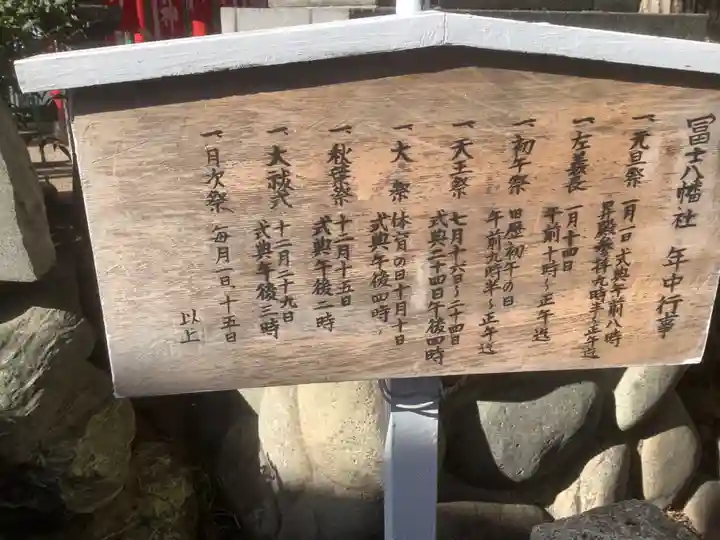 冨士八幡社 年中行事
一、元旦祭 一月一日 式典午前八時
昇殿参拝九時半〜正午迄
一、左義長 一月十四日
午前十時〜正午迄
一、初午祭 旧歴初午の日
午前九時半〜正午迄
一、天王祭 七月十六日〜二十四日
式典二十四日午後四時
一、大祭 体育の日十月十日
式典午後四時
一、秋葉祭 十二月十五日
式典午後二時
一、大祓式 十二月二十九日
式典午後三時
一、月次祭 毎月一日、十五日
以上
神